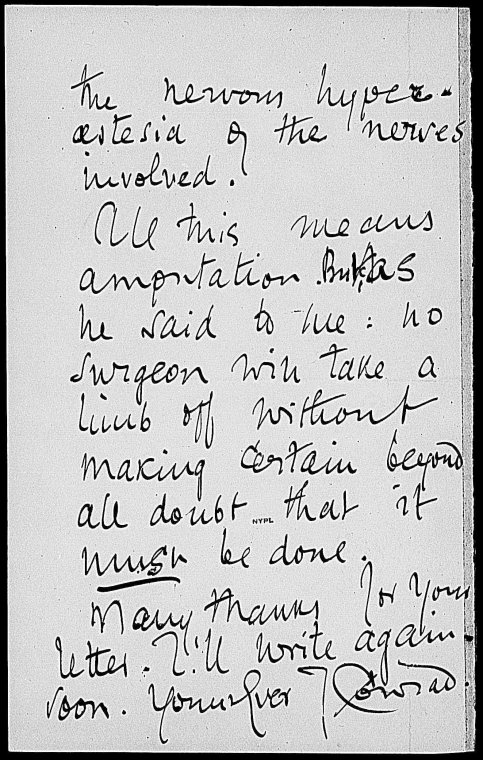 the nervous hyper-
æstesia of the nerves
involved.
All this means
amputation. But, as
he said to me: no
surgeon will take a
limb off without
making certain beyond
all doubt that it
NYPL
must be done.
Many thanks for your
letter. I'll write again
soon. Yours Ever J Conrad.